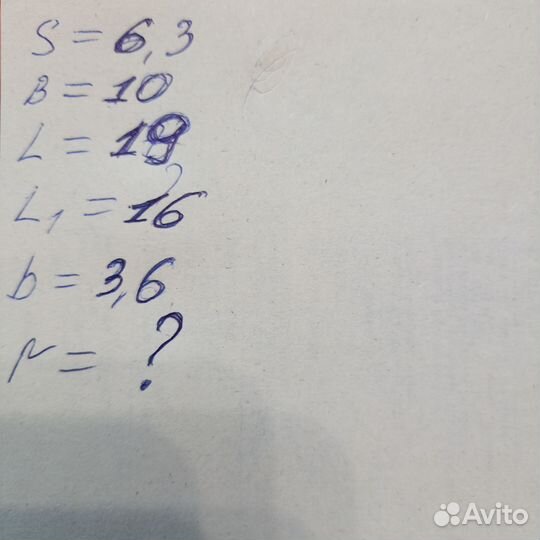 S = 6,3
B = 10
L = 19
L1 = 16
b = 3,6
r = ?
Avito